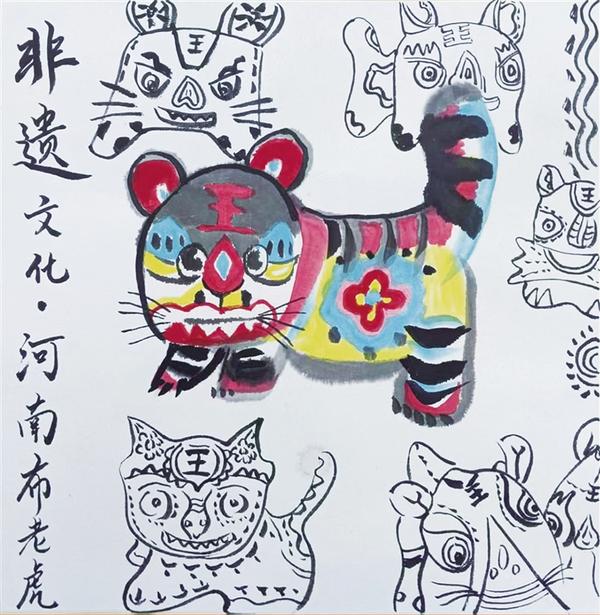 非遗文化·河南布老虎
王
王
王
王